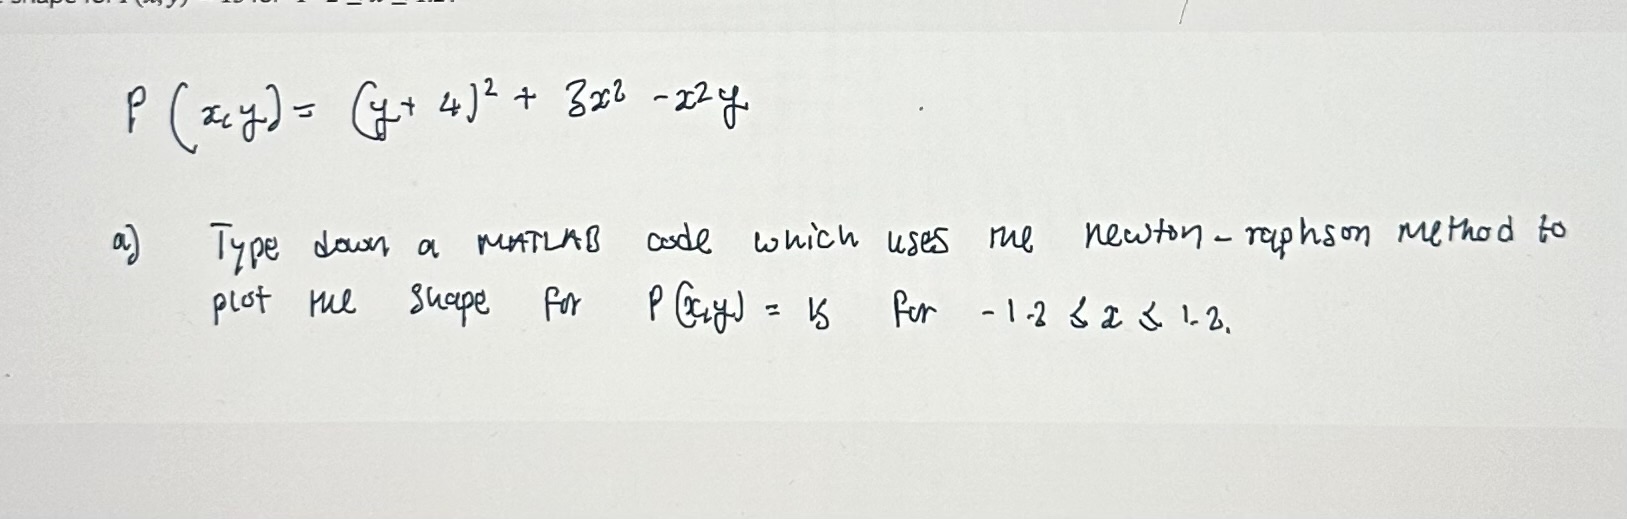 P(x,y) = (y+ 4)² + 3x² - x²y
a) Type down a MATLAB code which uses the newton-raphson method to
plot the shape for P(x,y) = 15 for -1.2 ≤ x ≤ 1.2.